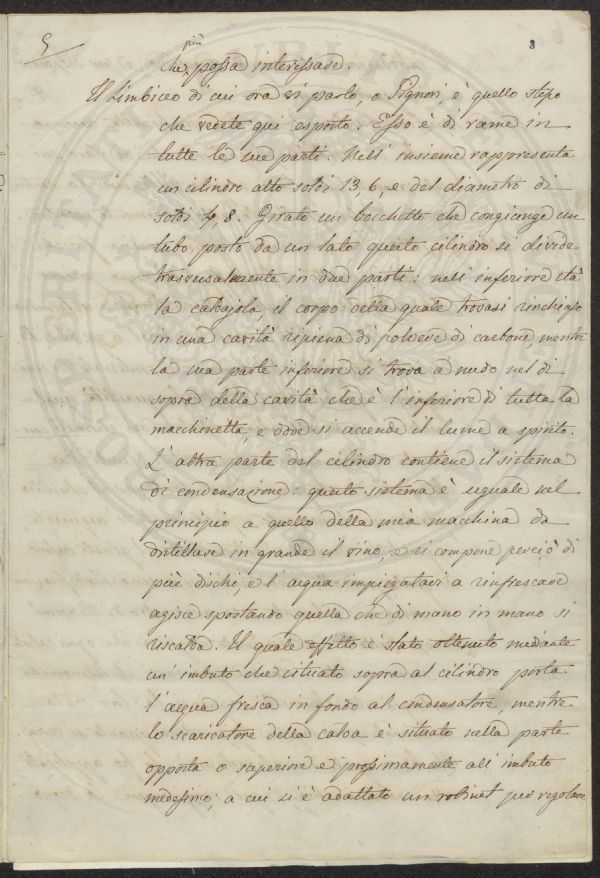 5
3
più
che possa interessare.
Il limbicco di cui ora vi parlo, o Signori, è quello stesso
che vedete qui esposto. Esso è di rame in
tutte le sue parti. Nell' insieme rappresenta
un cilindro alto soldi 13,6, e del diametro di
soldi 4,8. Girato un bocchetto che congiunge un
tubo posto da un lato questo cilindro si divide
trasversalmente in due parti: nell' inferiore stà
la caldajola, il corpo della quale trovasi rinchiuso
in una cavità ripiena di polvere di carbone, mentre
la sua parte inferiore si trova a nudo nel di
sopra della cavità che è l'inferiore di tutta la
macchinetta, e dove si accende il lume a spirito.
L' altra parte del cilindro contiene il sistema
di condensazione: questo sistema è uguale nel
principio a quello della mia macchina da
distillare in grande il vino, e si compone perciò di
più dischi, e l' acqua impiegatavi a rinfrescare
agisce spostando quella che di mano in mano si
riscalda. Il quale effetto è stato ottenuto mediante
un' imbuto che situato sopra al cilindro porta
l' acqua fresca in fondo al condensatore, mentre
lo scaricatore della calda è situato nella parte
opposta o superiore e prossimamente all' imbuto
medesimo, a cui si è adattato un robinet per regolare